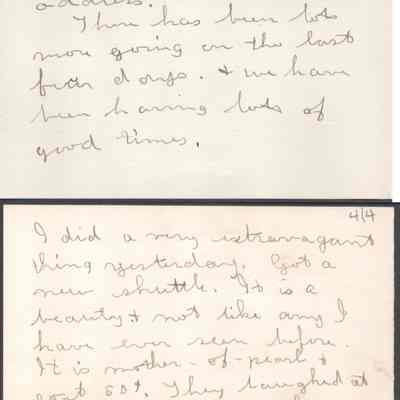 address.
There has been lots
more going on the last
four days. & we have
been having lots of
good times.
4/4
I did a very extravagant
thing yesterday. Got a
new shuttle. It is a
beauty & not like any I
have ever seen before.
It is mother-of-pearl &
cost 50¢. They laughed at